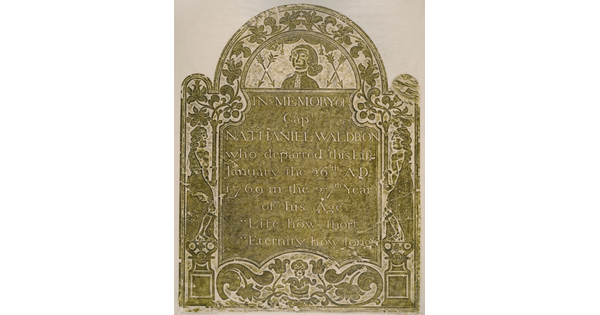 IN MEMORY of
Capt
NATHANIEL WALDRON
who departed this Life
January the 26th A.D.
1769 in the 27th Year
of his Age
"Life how short
"Eternity how long